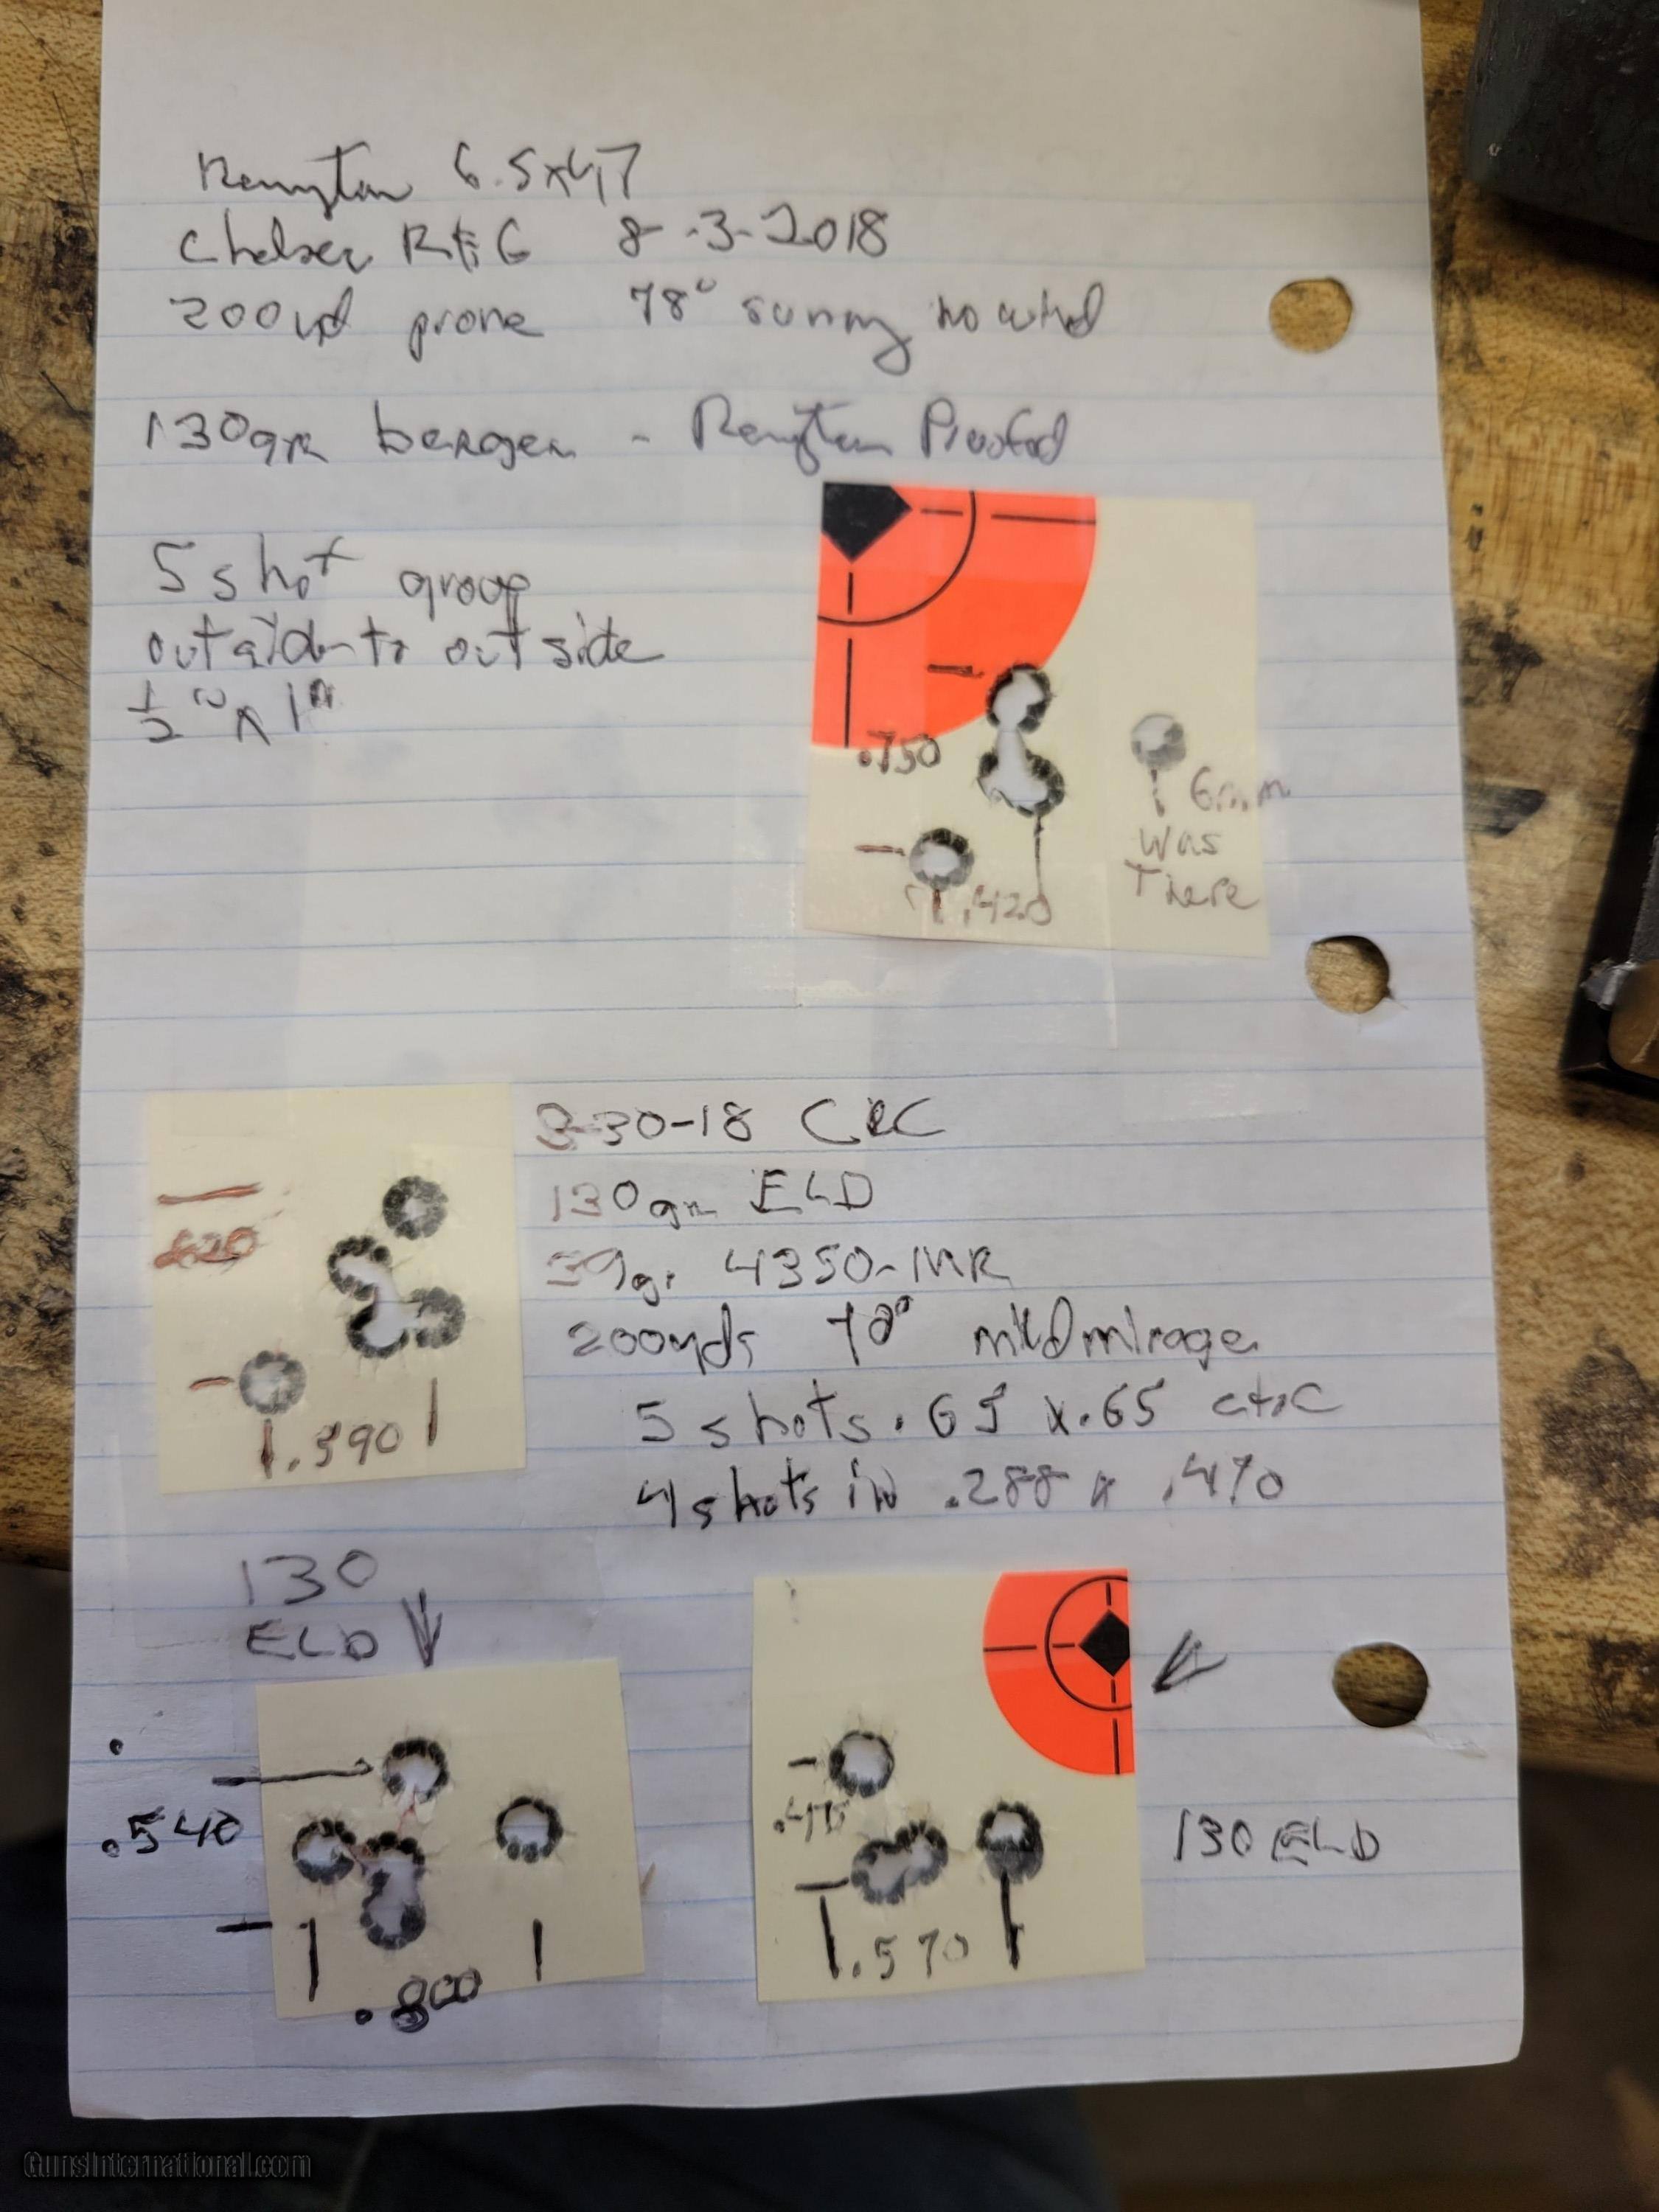 Remington 6.5x47
Chelsea R&G 8-3-2018
200yd prone 78° sunny no wind
130gr berger - Remington
5 shot group
outside to outside
½" x 1"
.750
6mm
was
There
.420
30-18
130gr ELD
.620
39gr 4350-
200yds 70° mild mirage
5 shots .65 x .65 ctc
.590
4 shots in .288 x .470
130
ELD
.540
130 ELD
.570
.800
GunsInternational.com